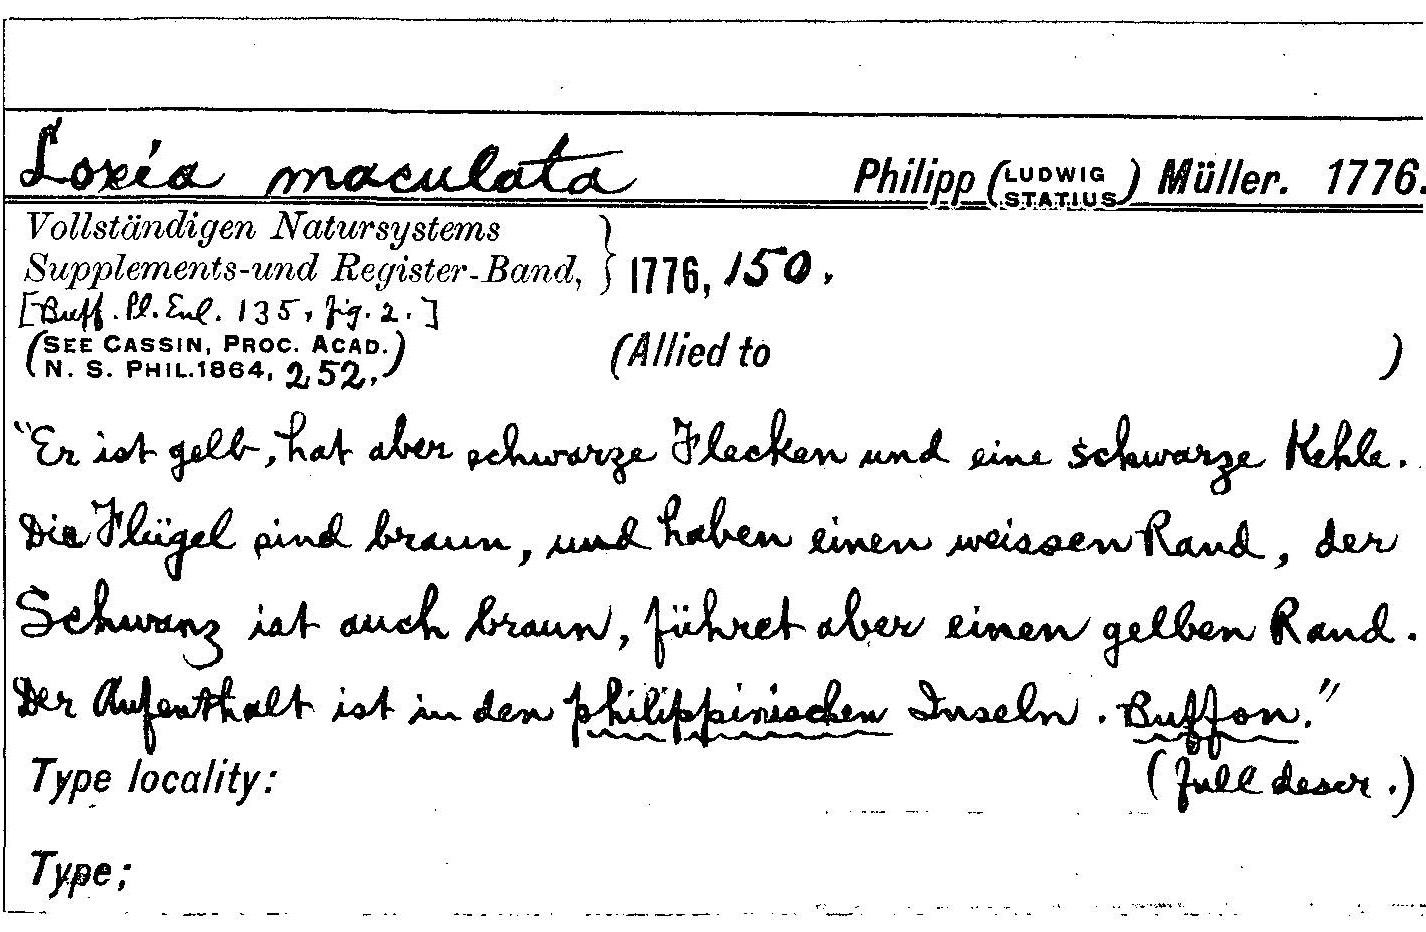 Loxia maculata Philipp (LUDWIG STATIUS) Müller. 1776.
Vollständigen Natursystems
Supplements-und Register-Band, } 1776, 150.
[Buff. Pl. Enl. 135, fig. 2.]
(SEE CASSIN, PROC. ACAD.
N. S. PHIL. 1864, 252.) (Allied to )
"Er ist gelb, hat aber schwarze Flecken und eine schwarze Kehle.
Die Flügel sind braun, und haben einen weissen Rand, der
Schwanz ist auch braun, führet aber einen gelben Rand.
Der Aufenthalt ist in den philippinischen Inseln. Buffon."
Type locality: (full descr.)
Type;